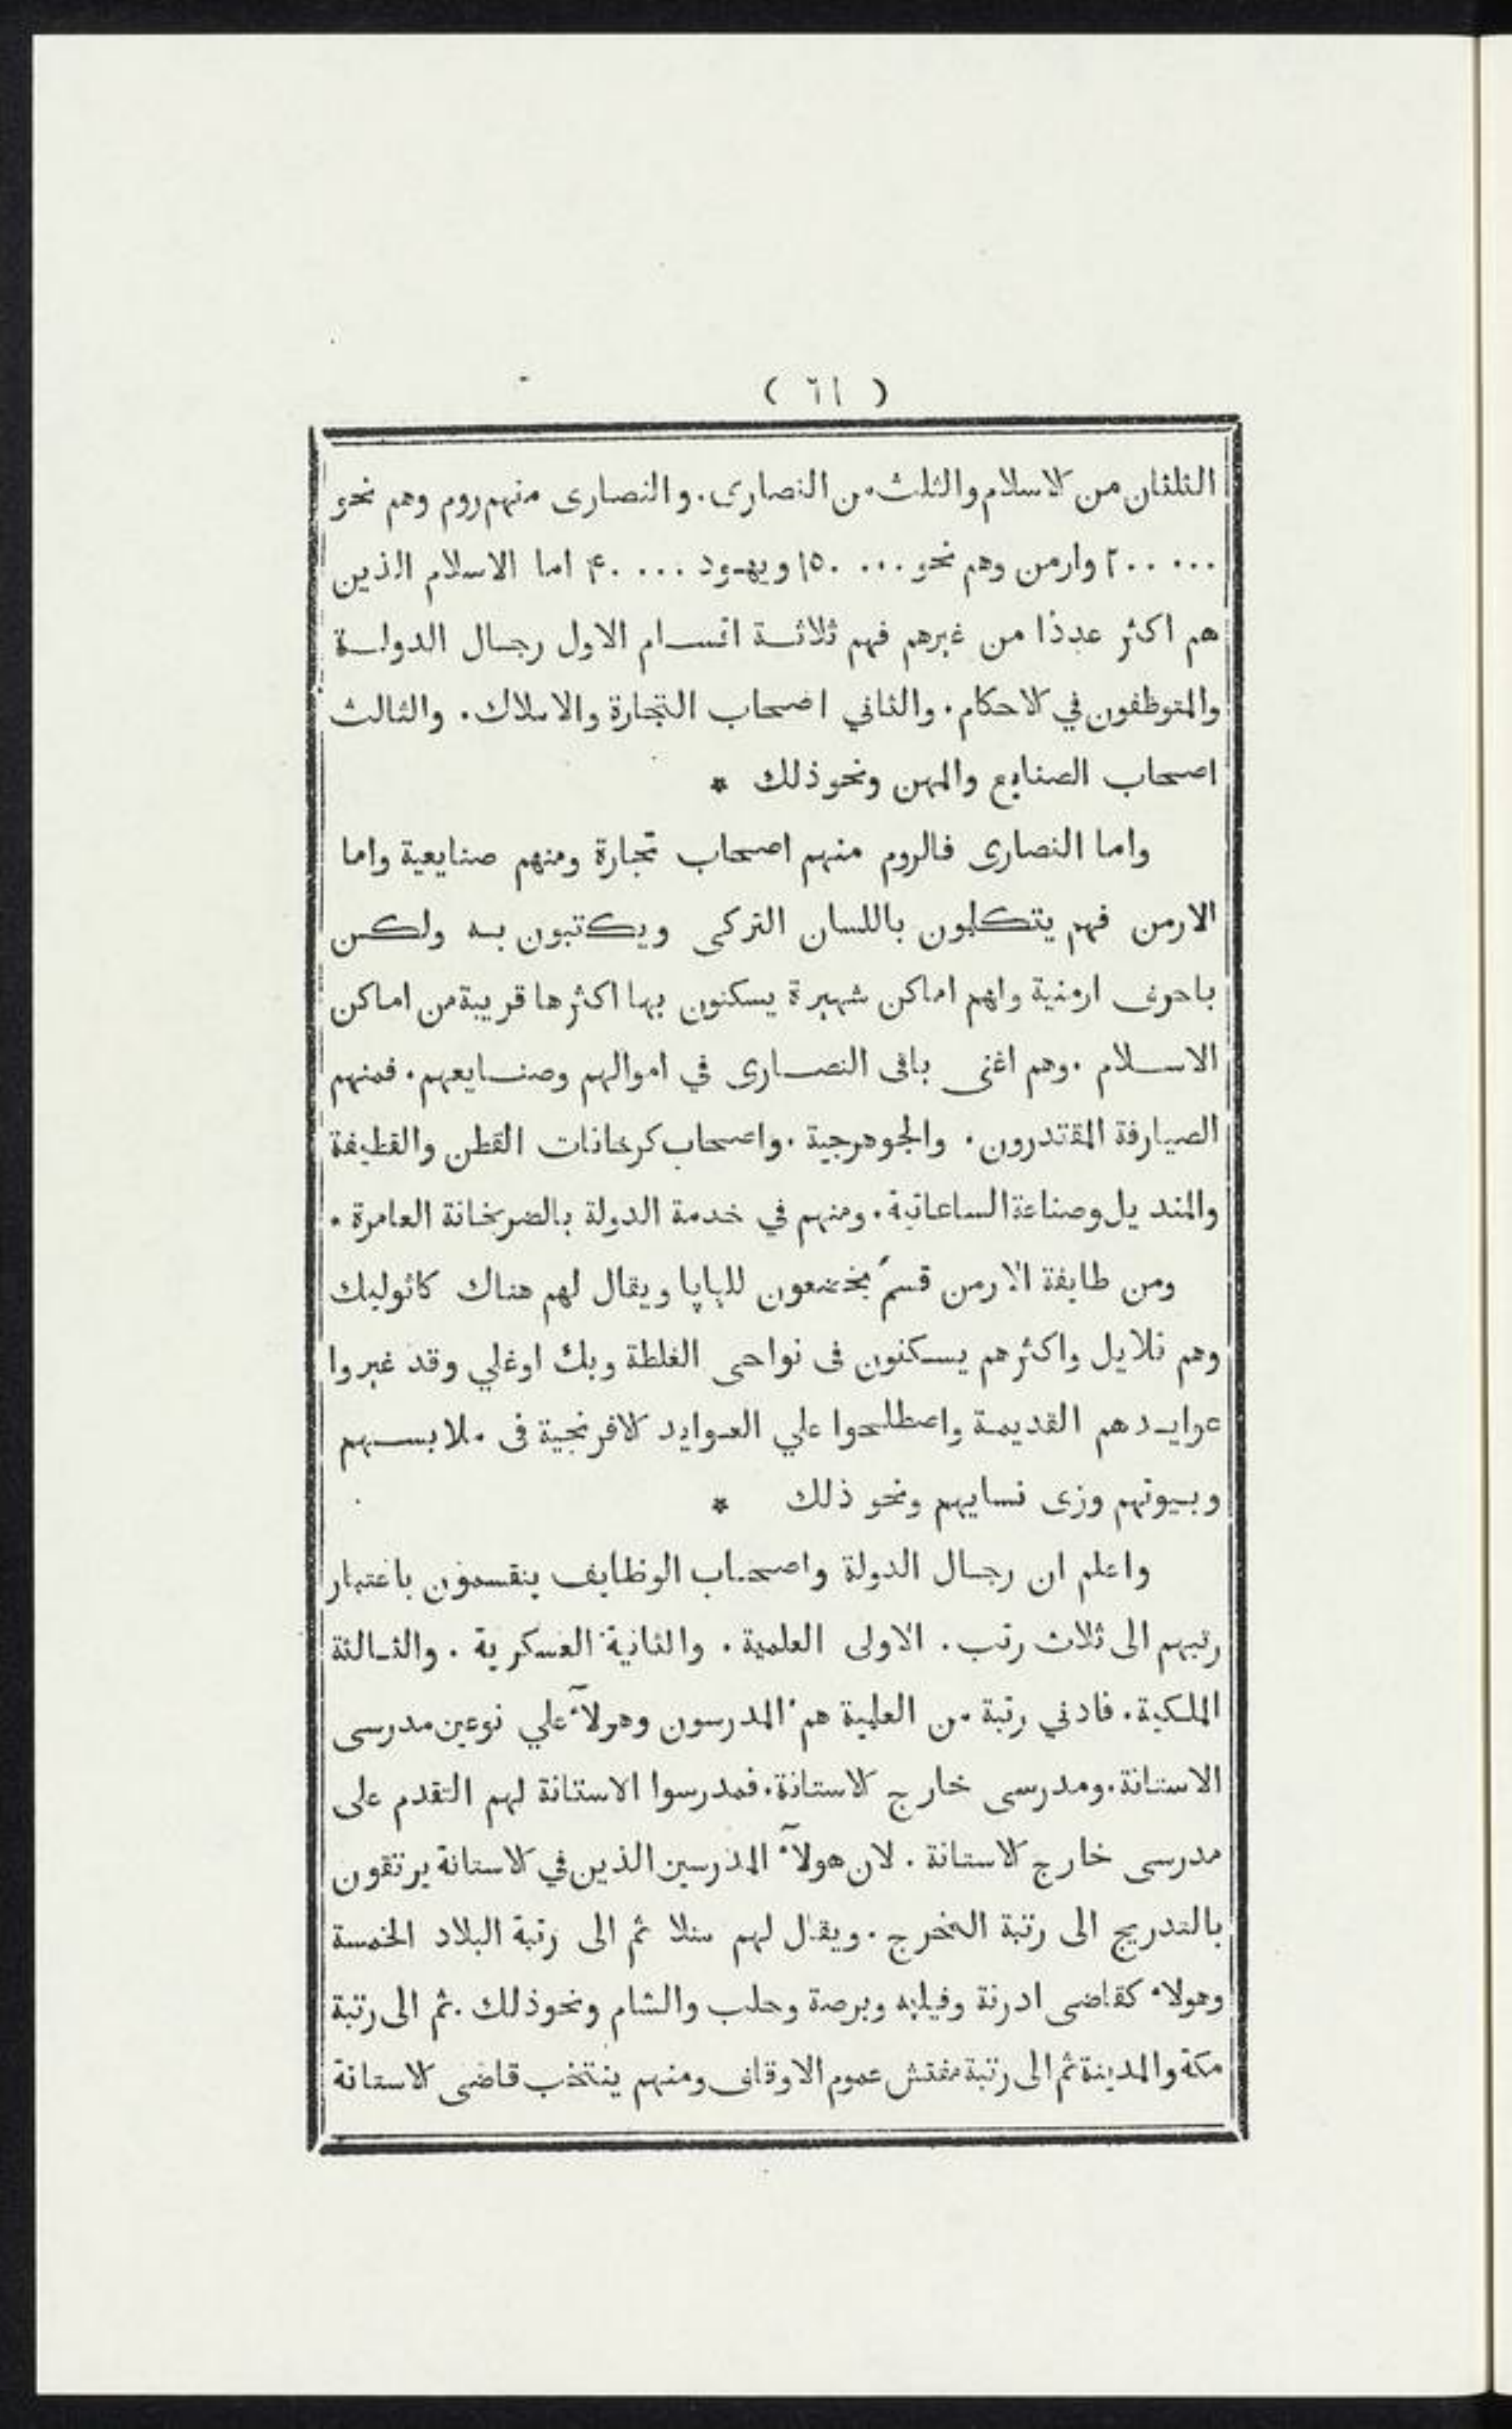 ( ٦١ )
الثلثان من الاسلام والثلث من النصارى. والنصارى منهم روم وهم نحو
٢٠٠٠٠٠ وارمن وهم نحو ١٥٠٠٠٠ ويهود ٤٠٠٠٠ اما الاسلام الذين
هم اكثر عددا من غيرهم فهم ثلاثة اقسام الاول رجال الدولة
والمتوظفون في الاحكام. والثاني اصحاب التجارة والاملاك. والثالث
اصحاب الصنايع والمهن ونحو ذلك *
واما النصارى فالروم منهم اصحاب تجارة ومنهم صنايعية واما
الارمن فهم يتكلمون باللسان التركى ويكتبون به ولكن
باحرف ارمنية ولهم اماكن شهيرة يسكنون بها اكثرها قريبة من اماكن
الاسلام. وهم اغنى باقى النصارى في اموالهم وصنايعهم. فمنهم
الصيارفة المقتدرون. والجوهرجية. واصحاب كرخانات القطن والقطيفة
والمنديل وصناعة الساعاتية. ومنهم في خدمة الدولة بالضربخانة العامرة.
ومن طايفة الارمن قسم يخضعون للپاپا ويقال لهم هناك كاثوليك
وهم قلايل واكثرهم يسكنون فى نواحى الغلطة وبك اوغلي وقد غيروا
عوايدهم القديمة واصطلحوا علي العوايد الافرنجية فى ملابسهم
وبيوتهم وزى نسايهم ونحو ذلك *
واعلم ان رجال الدولة واصحاب الوظايف ينقسمون باعتبار
رتبهم الى ثلاث رتب. الاولى العلمية. والثانية العسكرية. والثالثة
الملكية. فادني رتبة من العلمية هم المدرسون وهولآء علي نوعين مدرسى
الاستانة. ومدرسى خارج الاستانة. فمدرسوا الاستانة لهم التقدم على
مدرسى خارج الاستانة. لان هولآء المدرسين الذين في الاستانة يرتقون
بالتدريج الى رتبة المخرج. ويقال لهم منلا ثم الى رتبة البلاد الخمسة
وهولاء كقاضى ادرنة وفيلبه وبرصة وحلب والشام ونحو ذلك. ثم الى رتبة
مكة والمدينة ثم الى رتبة مفتش عموم الاوقاف ومنهم ينتخب قاضى الاستانة